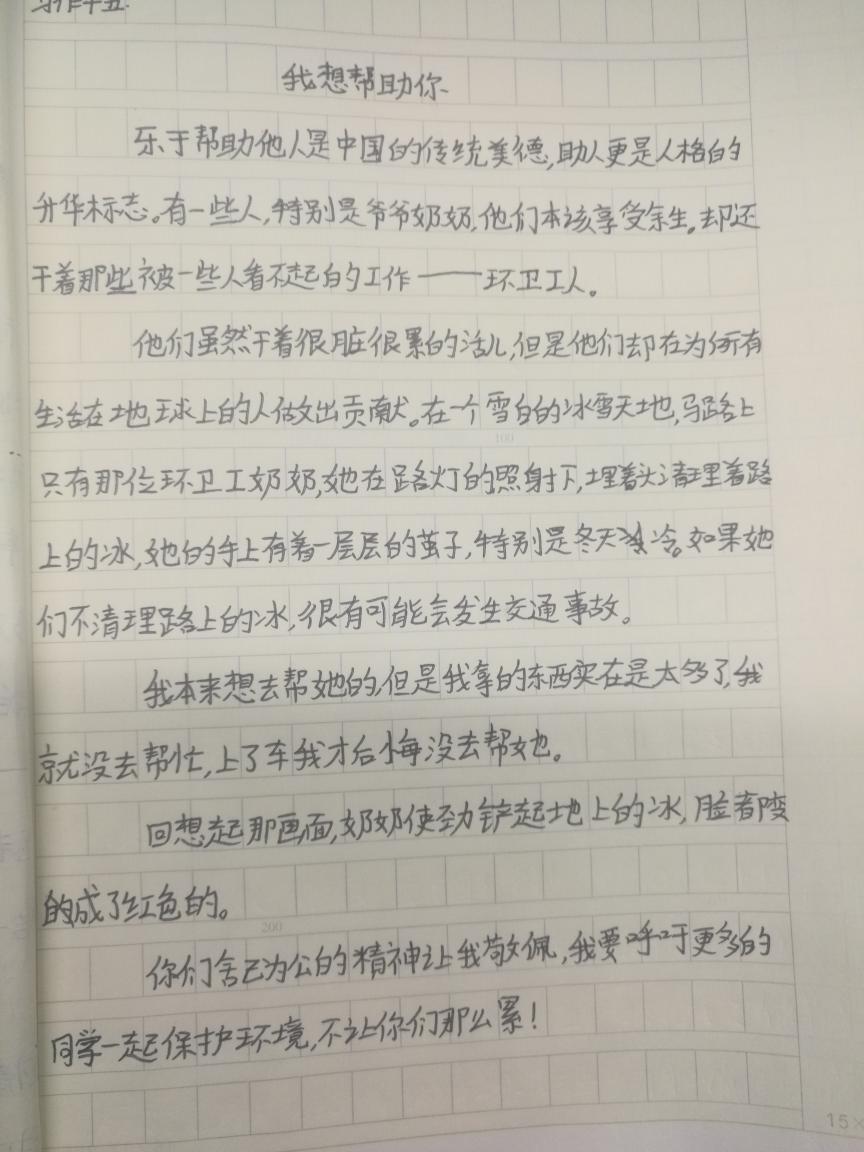 习作十五:
我想帮助你
乐于帮助他人是中国的传统美德,助人更是人格的
升华标志。有一些人,特别是爷爷奶奶,他们本该享受余生。却还
干着那些被一些人看不起的工作——环卫工人。
他们虽然干着很脏很累的活儿,但是他们却在为所有
生活在地球上的人做出贡献。在一个雪白的冰雪天地,马路上
只有那位环卫工奶奶,她在路灯的照射下,埋着头清理着路
上的冰,她的手上有着一层层的茧子,特别是冬天冷。如果她
们不清理路上的冰,很有可能会发生交通事故。
我本来想去帮她的,但是我拿的东西实在是太多了,我
就没去帮忙,上了车我才后悔没去帮她。
回想起那画面,奶奶使劲铲起地上的冰,脸都变
的成了红色的。
你们舍己为公的精神让我敬佩,我要呼吁更多的
同学一起保护环境,不让你们那么累!
100
200
15×